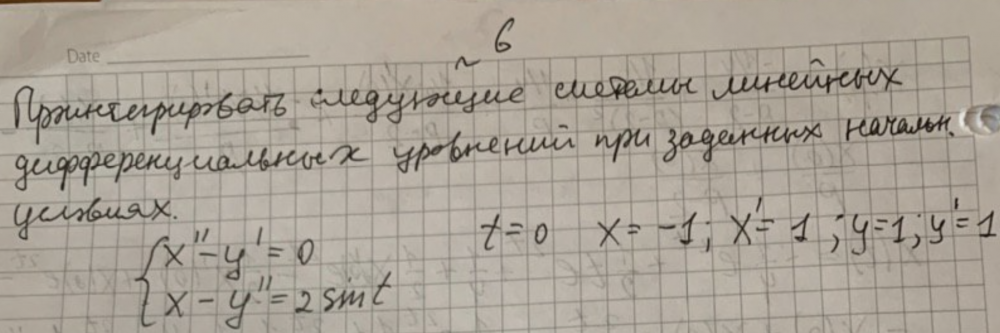 Date
~ 6
Проинтегрировать следующие системы линейных
дифференциальных уравнений при заданных начальн.
условиях.
{x'' - y' = 0
t = 0 x = -1; x' = 1; y = 1; y' = 1
{x - y'' = 2 sin t